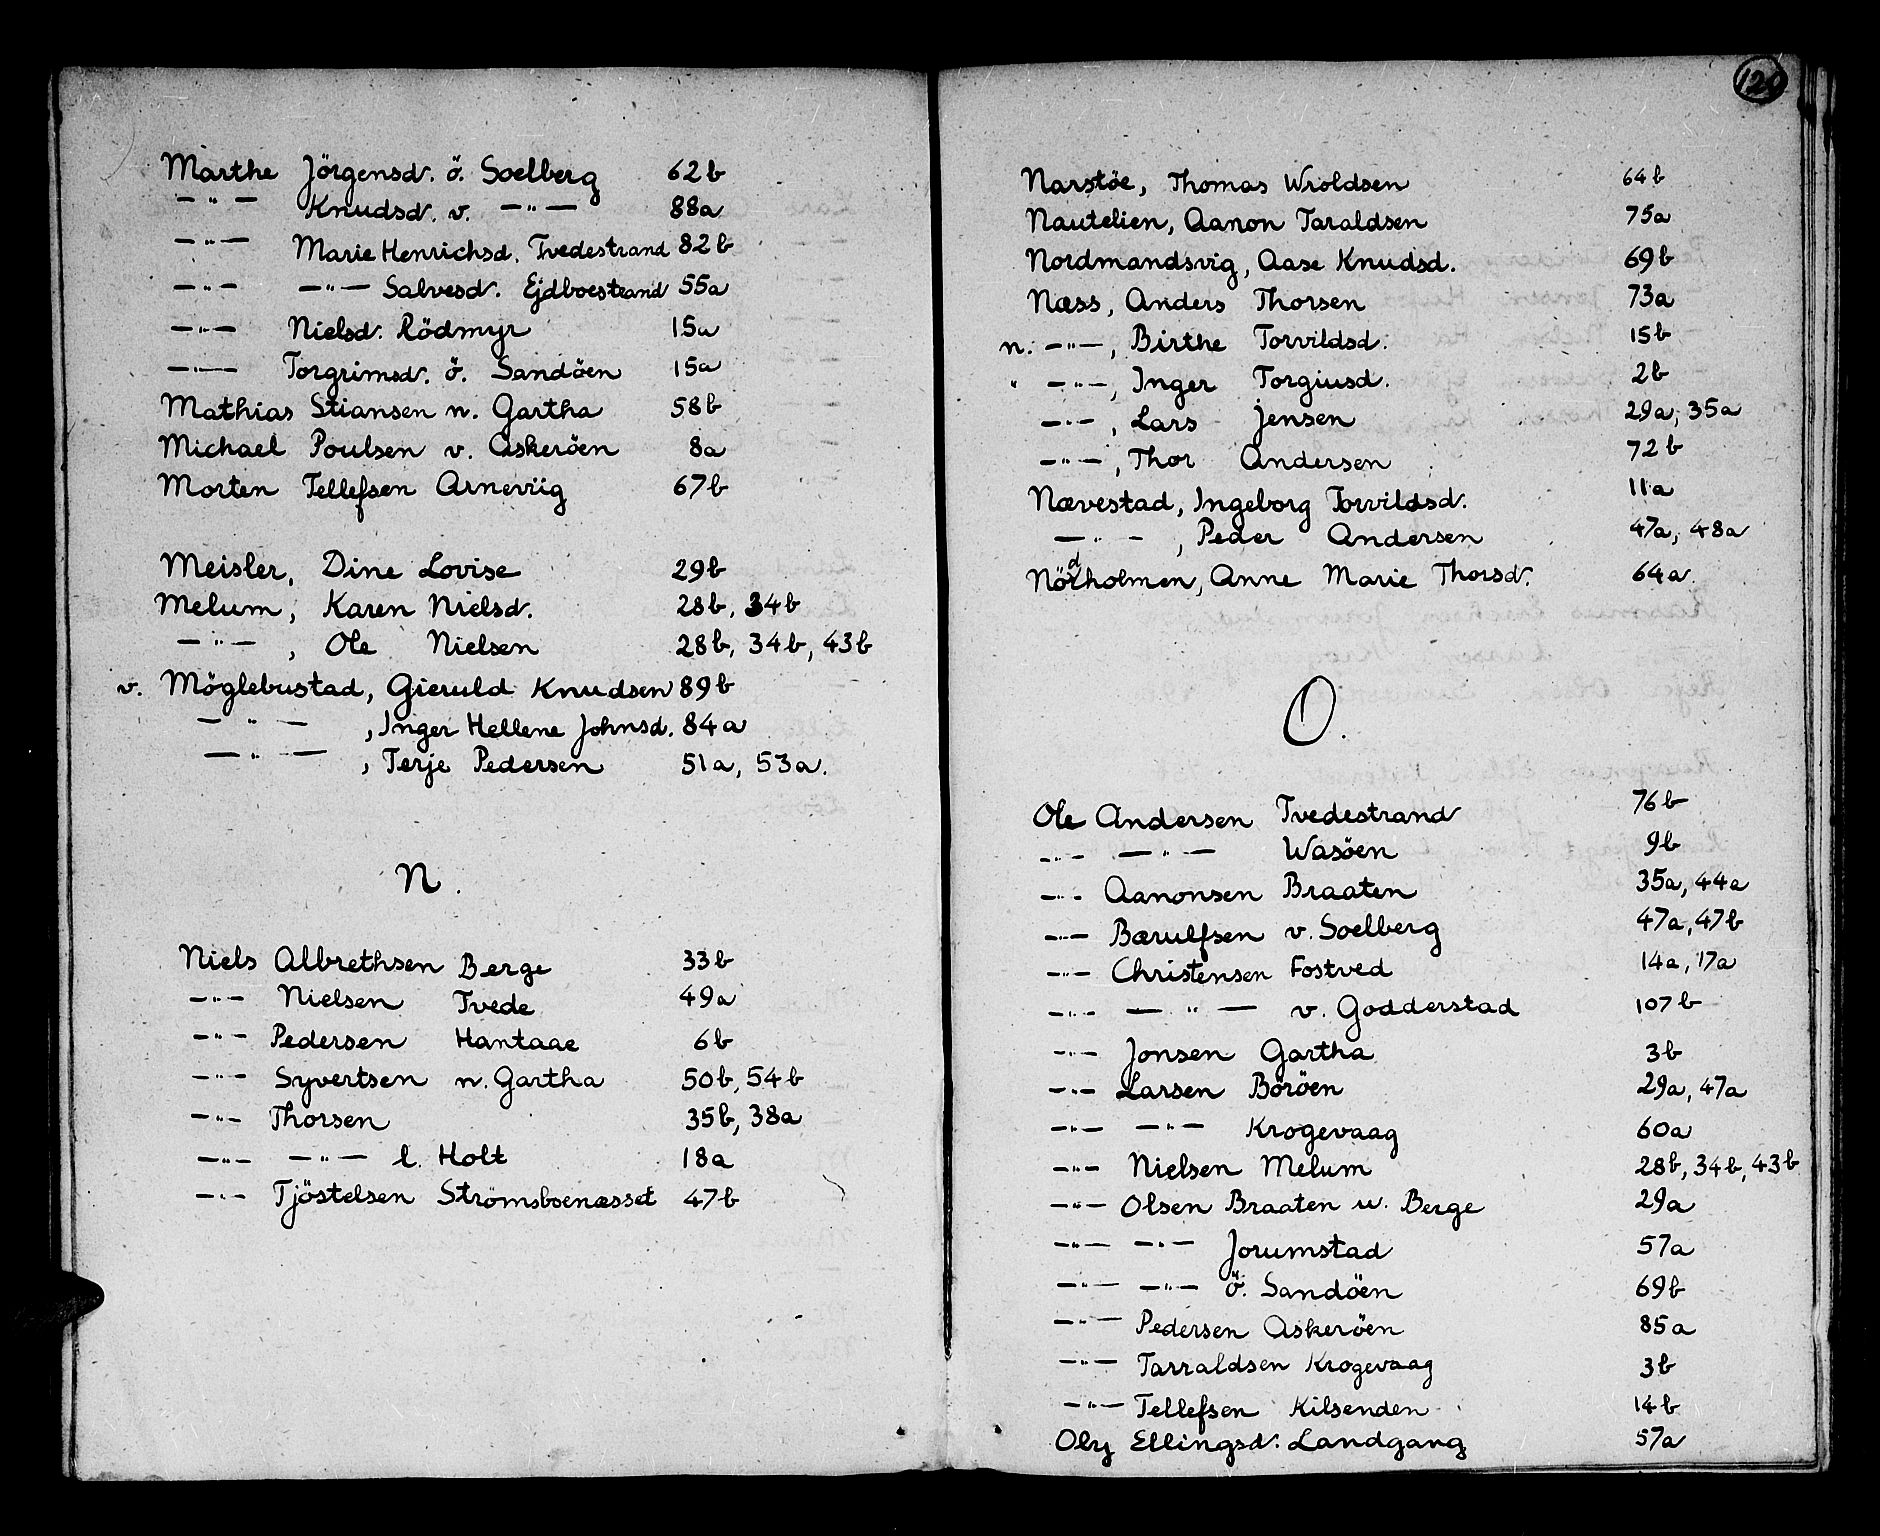 Marthe Jörgensd. ö. Soelberg 62b
— " — Knudsd. v. — " — 88a
— " — Marie Henrichsd. Tvedestrand 82b
— " — — " — Salvesd. Ejdboestrand 55a
— " — Nielsd. Rödmyr 15a
— " — Torgrimsd. ö. Sandöen 15a
Mathias Stiansen n. Gartha 58b
Michael Poulsen v. Askeröen 8a
Morten Tellefsen Arneviig 67b
Meisler, Dine Lovise 29b
Melum, Karen Nielsd. 28b, 34b
— " — , Ole Nielsen 28b, 34b, 43b
v. Möglebustad, Gieruld Knudsen 89b
— " — , Inger Hellene Johnsd. 84a
— " — , Terje Pedersen 51a, 53a.
N.
Niels Albrethsen Berge 33b
— " — Nielsen Tvede 49a
— " — Pedersen Hantaae 6b
— " — Syvertsen n. Gartha 50b, 54b
— " — Thorsen 35b, 38a
— " — — " — l. Holt 18a
— " — Tjöstelsen Strömsboenæsset 47b
120
Narstöe, Thomas Wroldsen 64b
Nautelien, Aanon Taraldsen 75a
Nordmandsvig, Aase Knudsd. 69b
Næss, Anders Thorsen 73a
n. — " — , Birthe Torvildsd. 15b
" — " — , Inger Torgiusd. 2b
— " — , Lars Jensen 29a, 35a
— " — , Thor Andersen 72b
Nævestad, Ingeborg Torvildsd. 11a
— " — , Peder Andersen 47a, 48a
Nödholmen, Anne Marie Thorsd. 64a
O.
Ole Andersen Tvedestrand 76b
— " — — " — Wasöen 9b
— " — Aanonsen Braaten 35a, 44a
— " — Bærulfsen v. Soelberg 47a, 47b
— " — Christensen Fostved 14a, 17a
— " — — " — v. Godderstad 107b
— " — Jonsen Gartha 3b
— " — Larsen Böröen 29a, 47a
— " — — " — Krogevaag 60a
— " — Nielsen Melum 28b, 34b, 43b
— " — Olsen Braaten u. Berge 29a
— " — — " — Jorumstad 57a
— " — — " — ö. Sandöen 69b
— " — Pedersen Askeröen 85a
— " — Tarraldsen Krogevaag 3b
— " — Tellefsen Kilsenden 14b
Oly Ellingsd. Landgang 57a